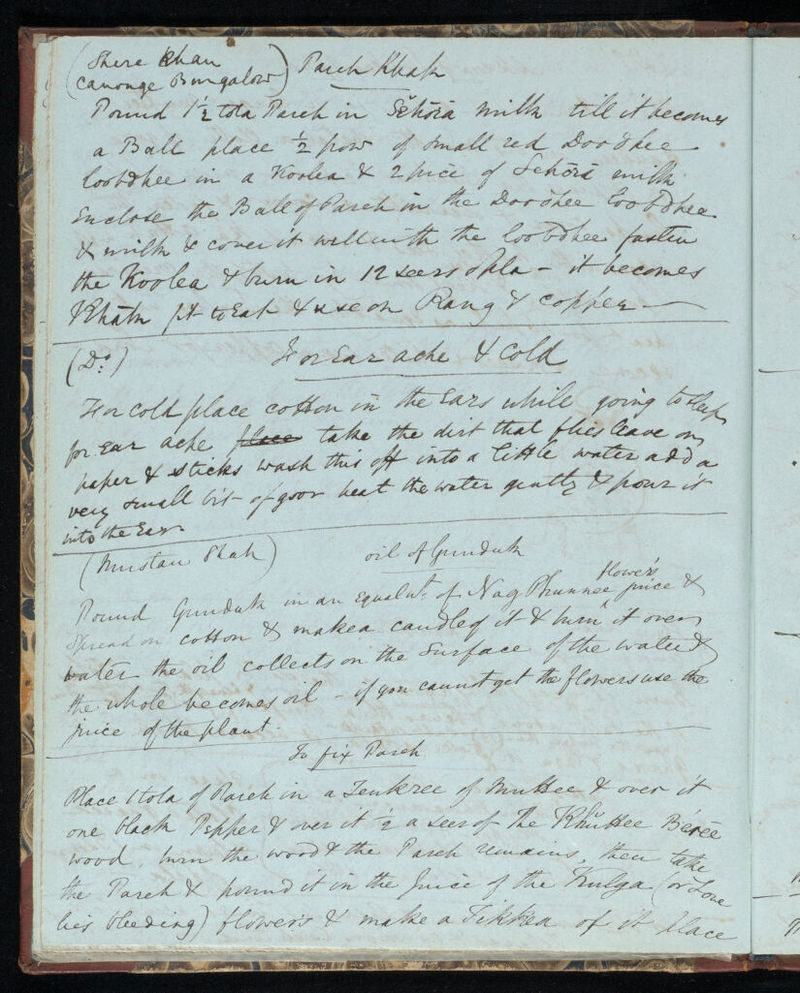 (Shere Khan
Canonge Bungalow) Pareh Khak
Pound 1½ tola Pareh in Sĕhōrā milk till it becomes
a Ball place ½ pow of small red Doodhee
loobdhee in a Koolea & 2 pice of Sehōrā milk
Enclose the Ball of Pareh in the Doodhee loobdhee
& milk & cover it well with the loobdhee fasten
the Koolea & burn in 12 seers opla - it becomes
fit to Eat & use on Rang & copper —
(Do.) For Ear ache & cold
For cold place cotton in the Ears while going to sleep
for Ear ache place take the dirt that flies leave on
paper & sticks wash this off into a little water add a
very small bit of goor heat the water gently & pour it
into the Ear
(Mustan Shah) oil of Gunduk
flower's
Pound Gunduk in an equal wt. of Nag Phunnee juice &
Spread on cotton & make a candle of it & burn it over
water the oil collects on the surface of the water &
the whole becomes oil - if you cannot get the flowers use the
juice of the plant.
To fix Pareh
Place 1 tola of Pareh in a of Muttee & over it
one black Pepper & over it ½ a seer of the Khŭttee Béreē
wood, burn the wood & the Pareh remains, then take
the Pareh & pound it in the Juice of the Kulga (or Love
lies bleeding) flowers & make a Tikkea of it place